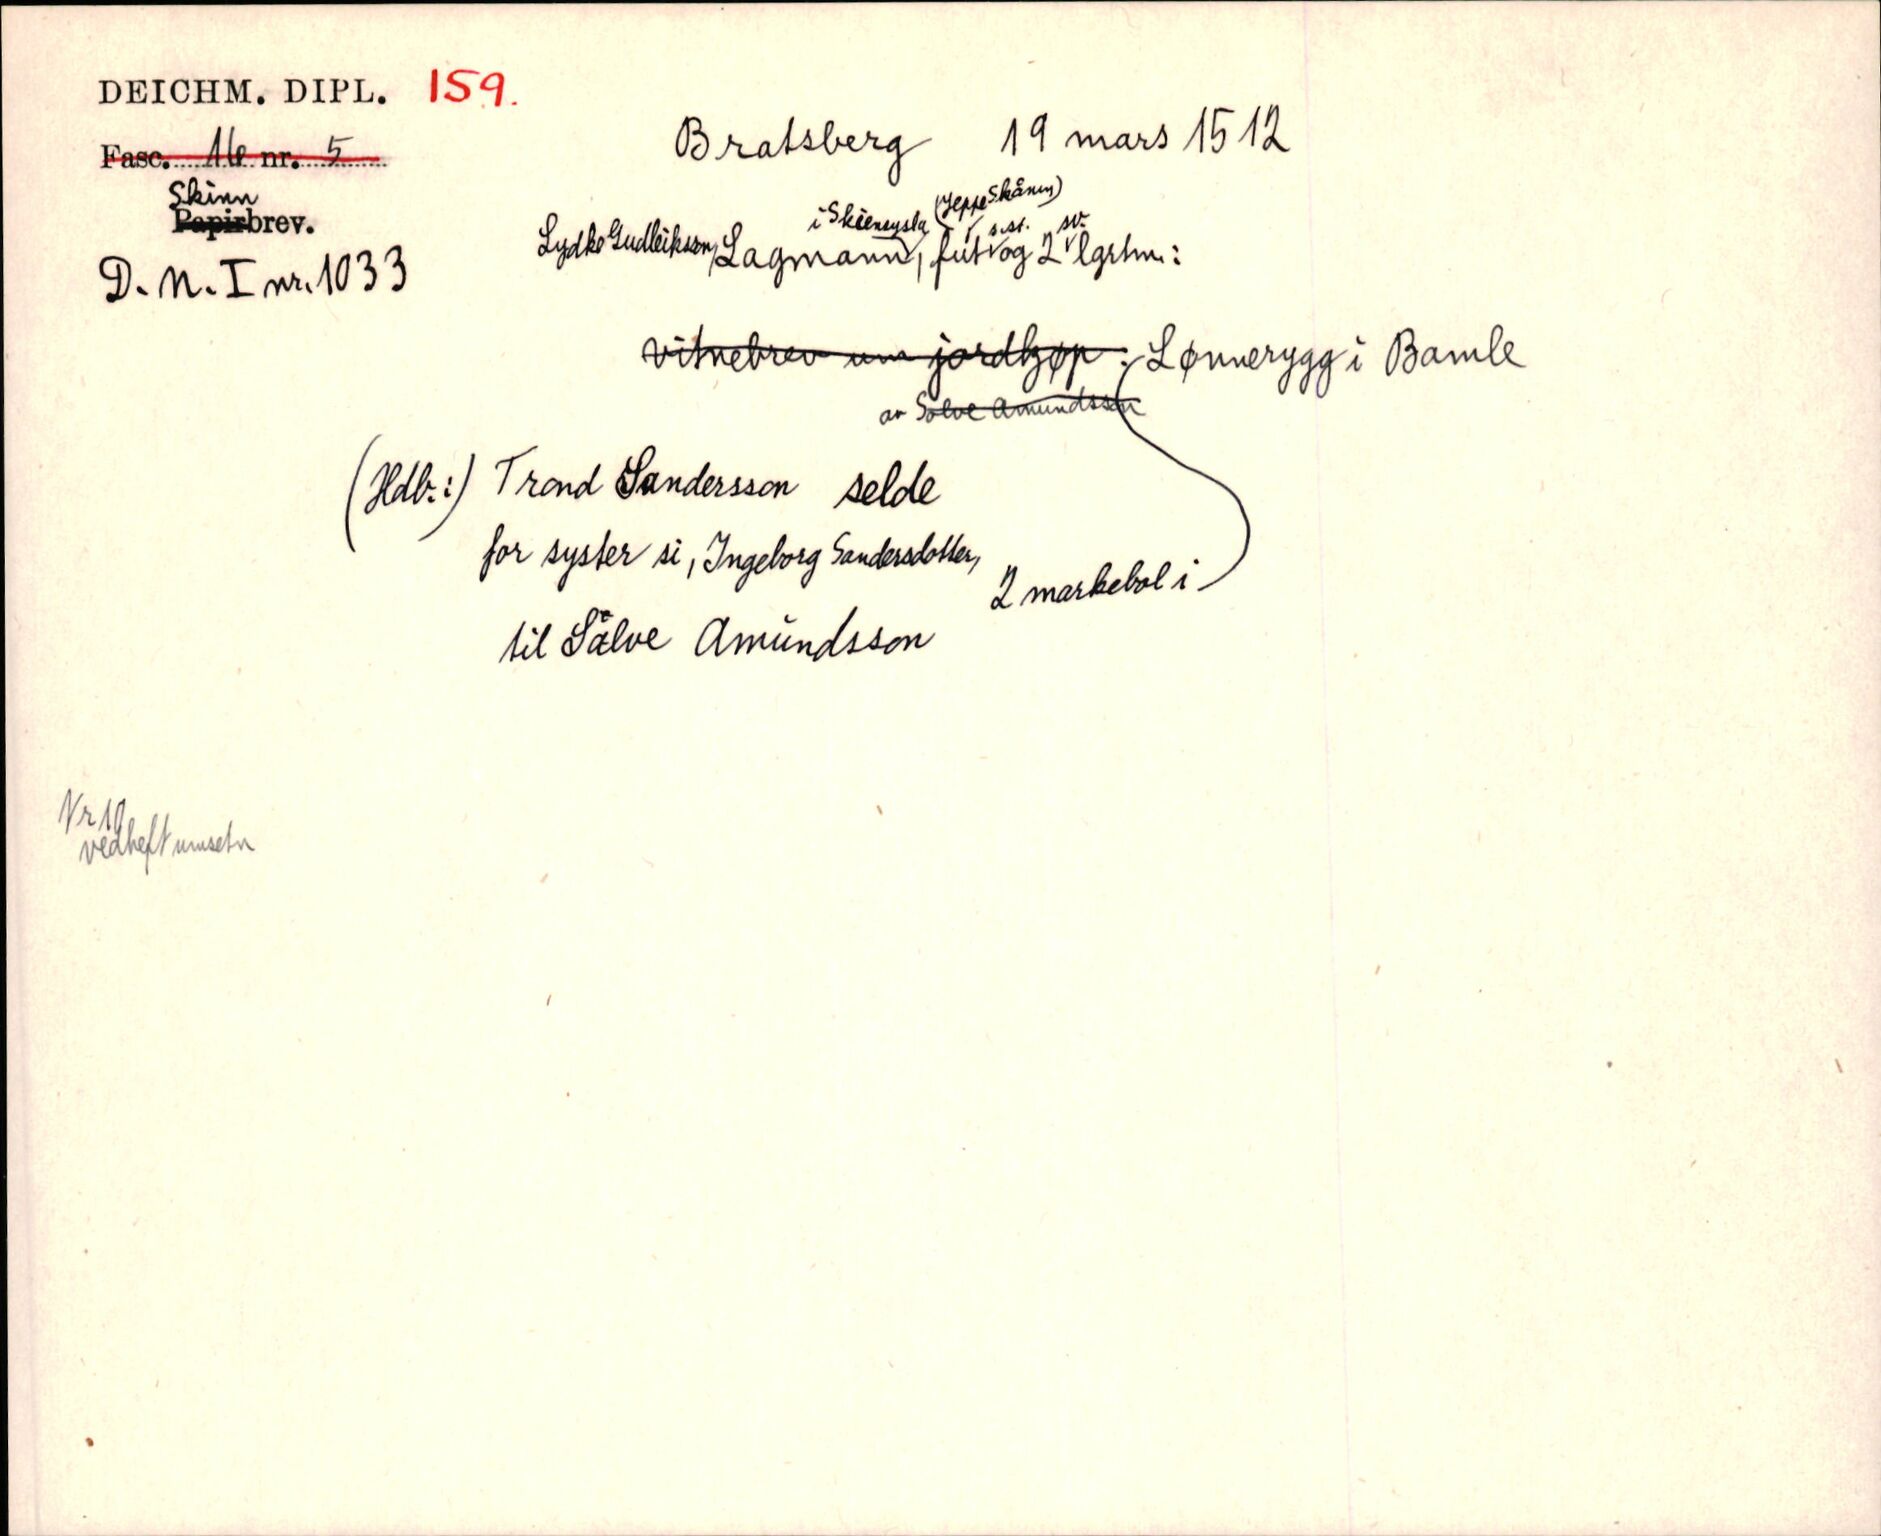 DEICHM. DIPL. 159.
Fasc. 16 nr. 5
Skinn
Papirbrev.
D. N. I nr. 1033
Bratsberg 19 mars 1512
i Skiensysla (Jeppe Skåning) s.st. sv.
Lydke Gudleiksson, Lagmann, fut og 2 lgrtm.:
vitnebrev um jordkjøp: Lønnerygg i Bamle
av Solve Amundsson
(Hdb.:) Trond Sandersson selde
for syster si, Ingeborg Sandersdotter,
2 markebol i
til Sålve Amundsson
Nr 10
vedheft umsetn